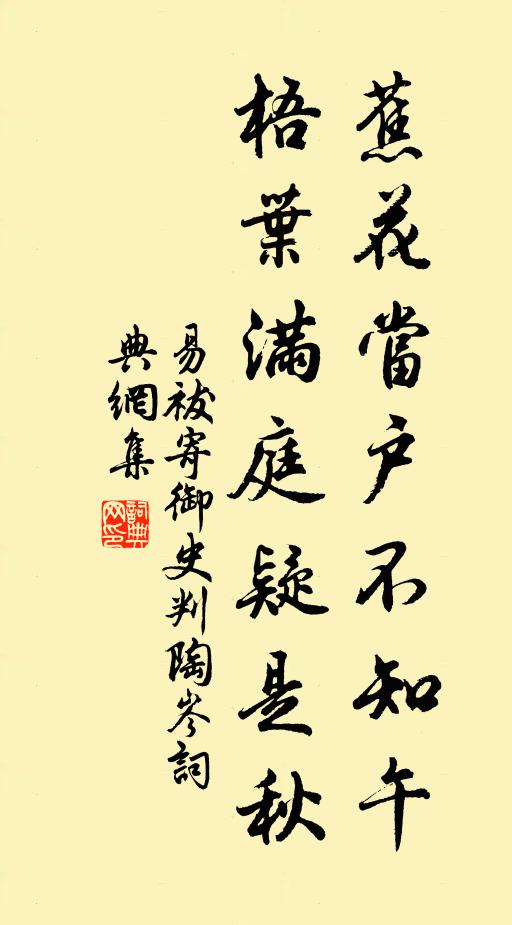 蕉花當户不知午
梧葉滿庭疑是秋
易祓寄御史判陶岑詞
典網集
詞典
网印